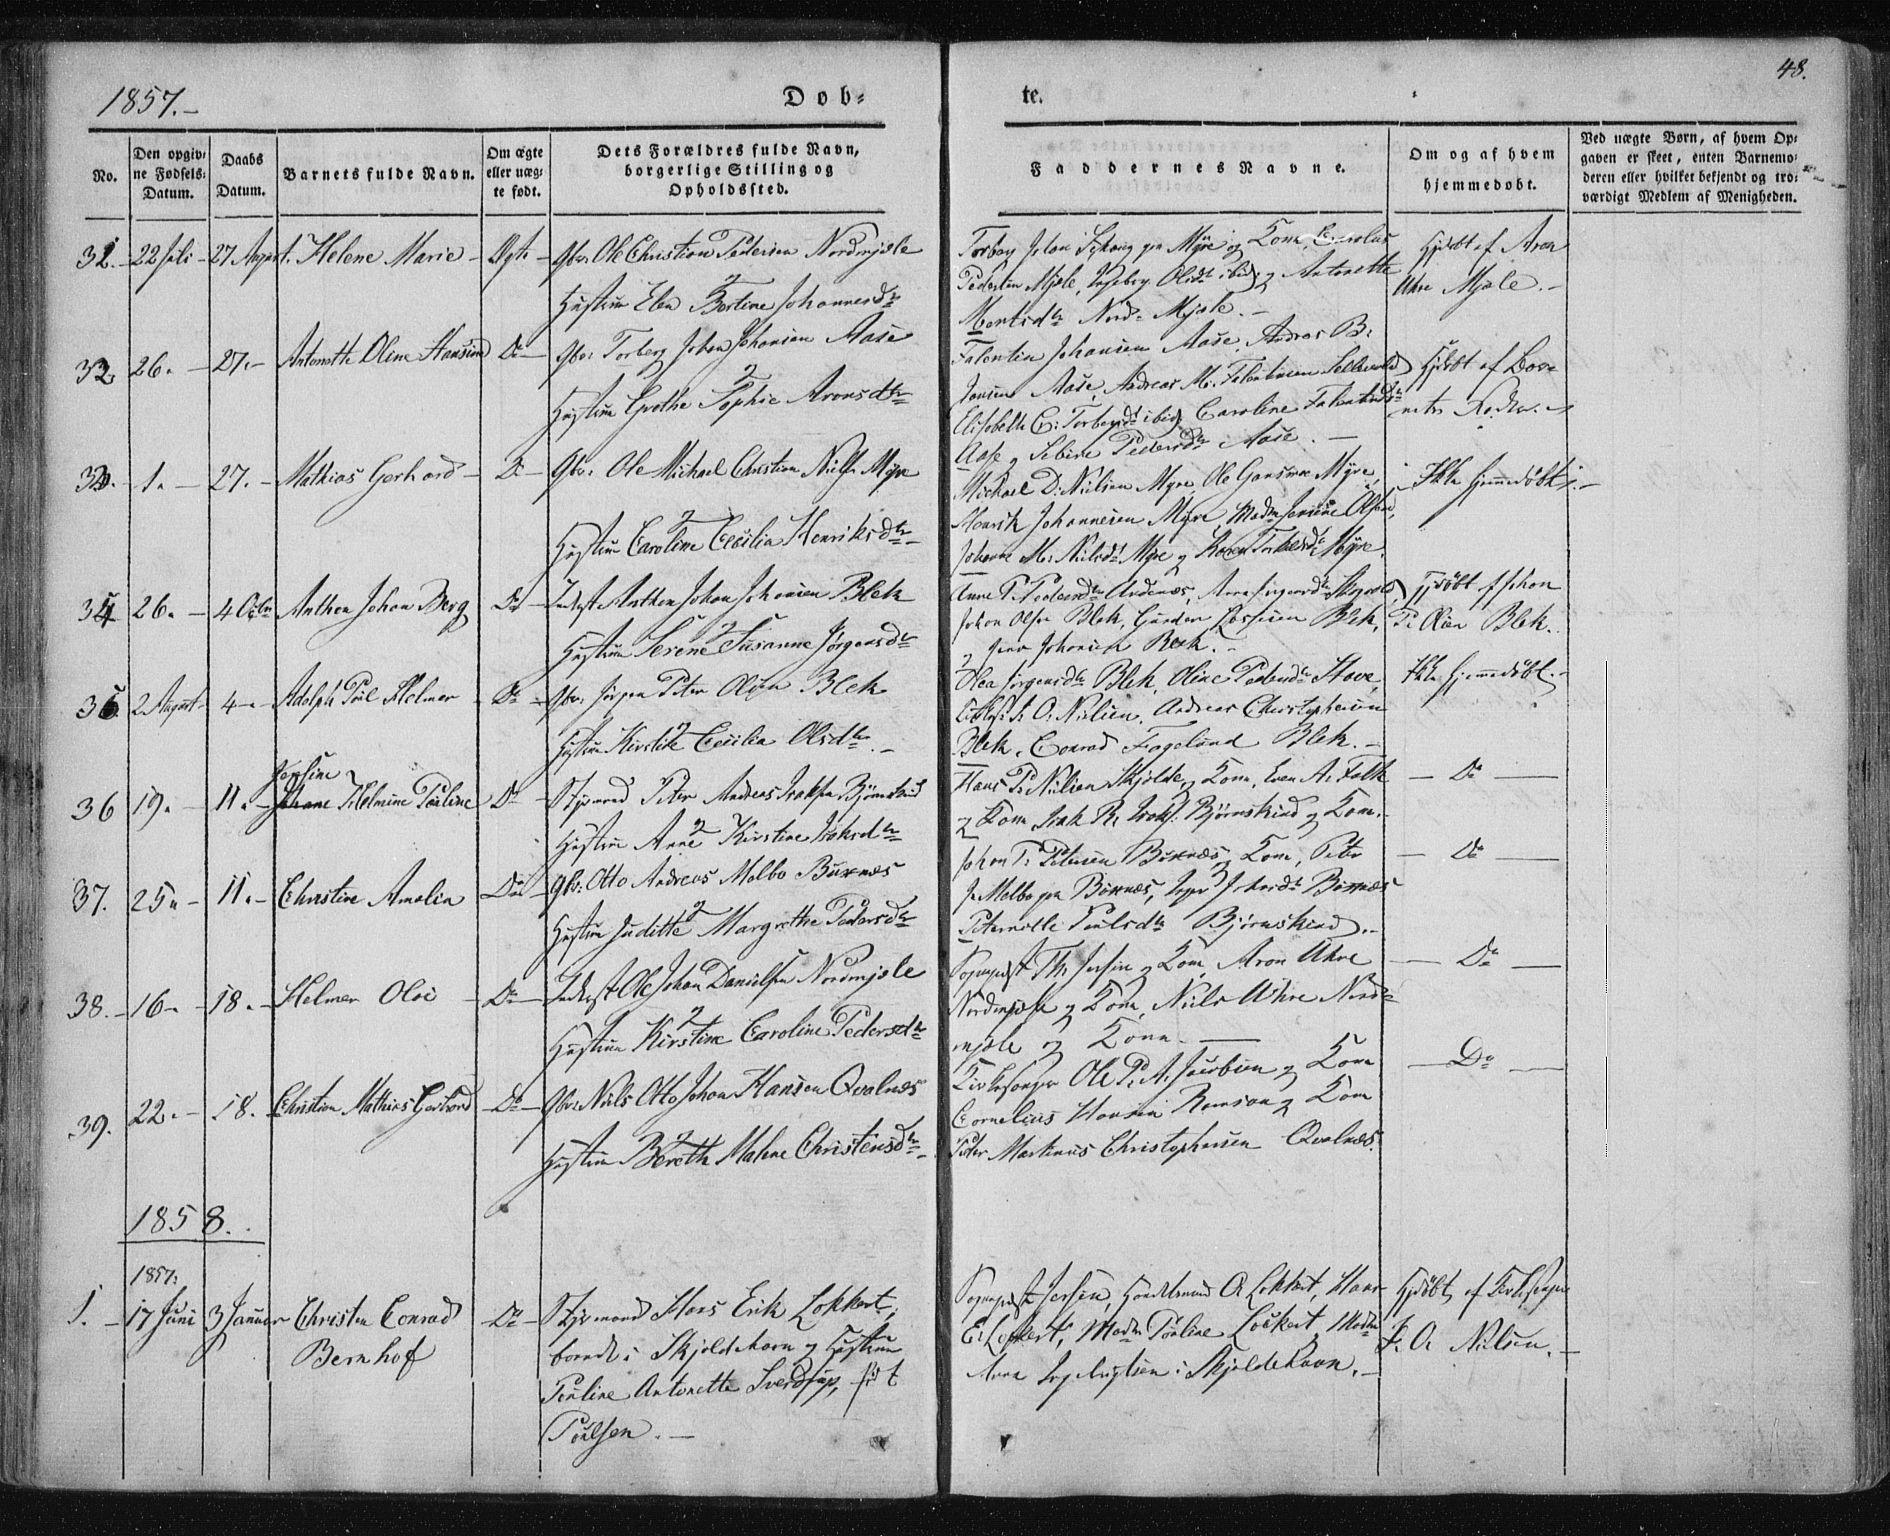 1857.-
Døb-
te.
48.
No.
Den opgiv-
ne Fødsels-
Datum.
Daabs
Datum.
Barnets fulde Navn.
Om ægte
eller uæg-
te født.
Dets Forældres fulde Navn,
borgerlige Stilling og
Opholdssted.
Faddernes Navne.
Om og af hvem
hjemmedøbt.
Ved uægte Børn, af hvem Op-
gaven er skeet, enten Barnemo-
deren eller hvilket bekjendt og tro-
værdigt Medlem af Menigheden.
31. 22 Juli - 27 August. Helene Marie - Ægte - Gbr. Ole Christian Pedersen Nordmjele
Hustru Elen Bertine Johannesdtr
Pedersen Mjele, Ingeborg Olsdtr ibid og Antonette
Nord-Mjele. -
Hjdøbt af Aron
Uhre Mjele. -
32. 26. - 27. - Antonette Oline Hansine Do - Gbr. Torberg Johan Johansen Aase
Hustru Grethe Sophie Aronsdtr
Falentin Johansen Aase, Andreas B.
Jensen Aase, Andreas M. Falentinsen
Elisabeth C. Torbergsdt ibid, Caroline Falentinsdtr
Aase og Sebine Pedersdtr Aase. -
Hjdøbt af
33. - 1. - 27. - Mathias Gerhard - Do - Gbr. Ole Michael Christian Niels. Myre
Hustru Caroline Cecilia Henriksdtr -
Michael D. Nielsen Myre, Ole Myre,
Henrik Johannesen Myre, Madm
Johanna M. Nielsdt Myre og Karen Myre.
Ikke hjemmedøbt. -
34 26. - 4 Octbr Anthon Johan Berg Do - Inderst Anthon Johan Johansen Blek
Hustru Serene Susanne Jørgensdtr
Anne P. Pedersdtr Andenæs,
Johan Olsen Blek, Blek,
og Jens Johansen Blek. -
Hjdøbt af Johan
P. Olsen Blek.
35. 2 August - 4 - Adolph Poul Helmer - Do - Gbr. Jørgen Peter Olsen Blek
Hustru Kirstine Cecilia Olsdtr. -
Olea Jørgensdtr Blek, Oline Pedersdtr Stave,
O. Nielsen, Andreas Christophersen
Blek, Conrad Fageland Blek. -
Ikke hjemmedøbt. -
Josefine
36 19. - 11. - Johane Helmine Pauline Do - Peter Andreas Isaksen Bjørnskind
Hustru Anne Kirstine Isaksdtr
Hans P. Nilsen Skjolde og Kone, Even A. Falk
og Kone, Isak R. Isaks. Bjørnskind og Kone. -
- Do -
37. 25. - 11. - Christine Amalia - Do - Gbr. Otto Andreas Melbo Buxnæs
Hustru Juditte Margrethe Pedersdtr
Johan P. Petersen Buxnæs og Kone, Peter
J. Melbo paa Buxnæs, Inger Buxnæs
Peternille Poulsdtr Bjørnskind. -
- Do -
38. - 16. - 18. - Helmer Olai - Do - Inderst Ole Johan Danielsen Nordmjele
Hustru Kirstine Caroline Pedersdtr
Sognepræst Th. Jersin og Kone, Aron Uhre
Nordmjele og Kone, Niels Uhre Nord-
mjele og Kone. -
- Do -
39. 22. - 18. - Christian Mathias Gerhard - Do - Gbr. Niels Otto Johan Hansen Qvalnæs
Hustru Bereth Malene Christensdtr. -
Kirkesanger Ole P. A. Jacobsen og Kone
Cornelius Hansen Ramsaa og Kone
Peter Martinus Christophersen Qvalnæs.
- Do -
1858.
1857.
1. - 17 Juni 3 Januar Christen Conrad
Bernhof
- Do - Styrmand Hans Erik Lokkert,
boende i Skjoldehavn og Hustru
Pauline Antonette Sverdrup, født
Poulsen. -
Sognepræst Jersin, Handelsmand O Lokkert, Hans
E. Lokkert, Madm Pauline Lokkert, Madm
Anna i Skjoldehavn. -
Hjdøbt af Kirkesanger
J. O. Nilsen. -